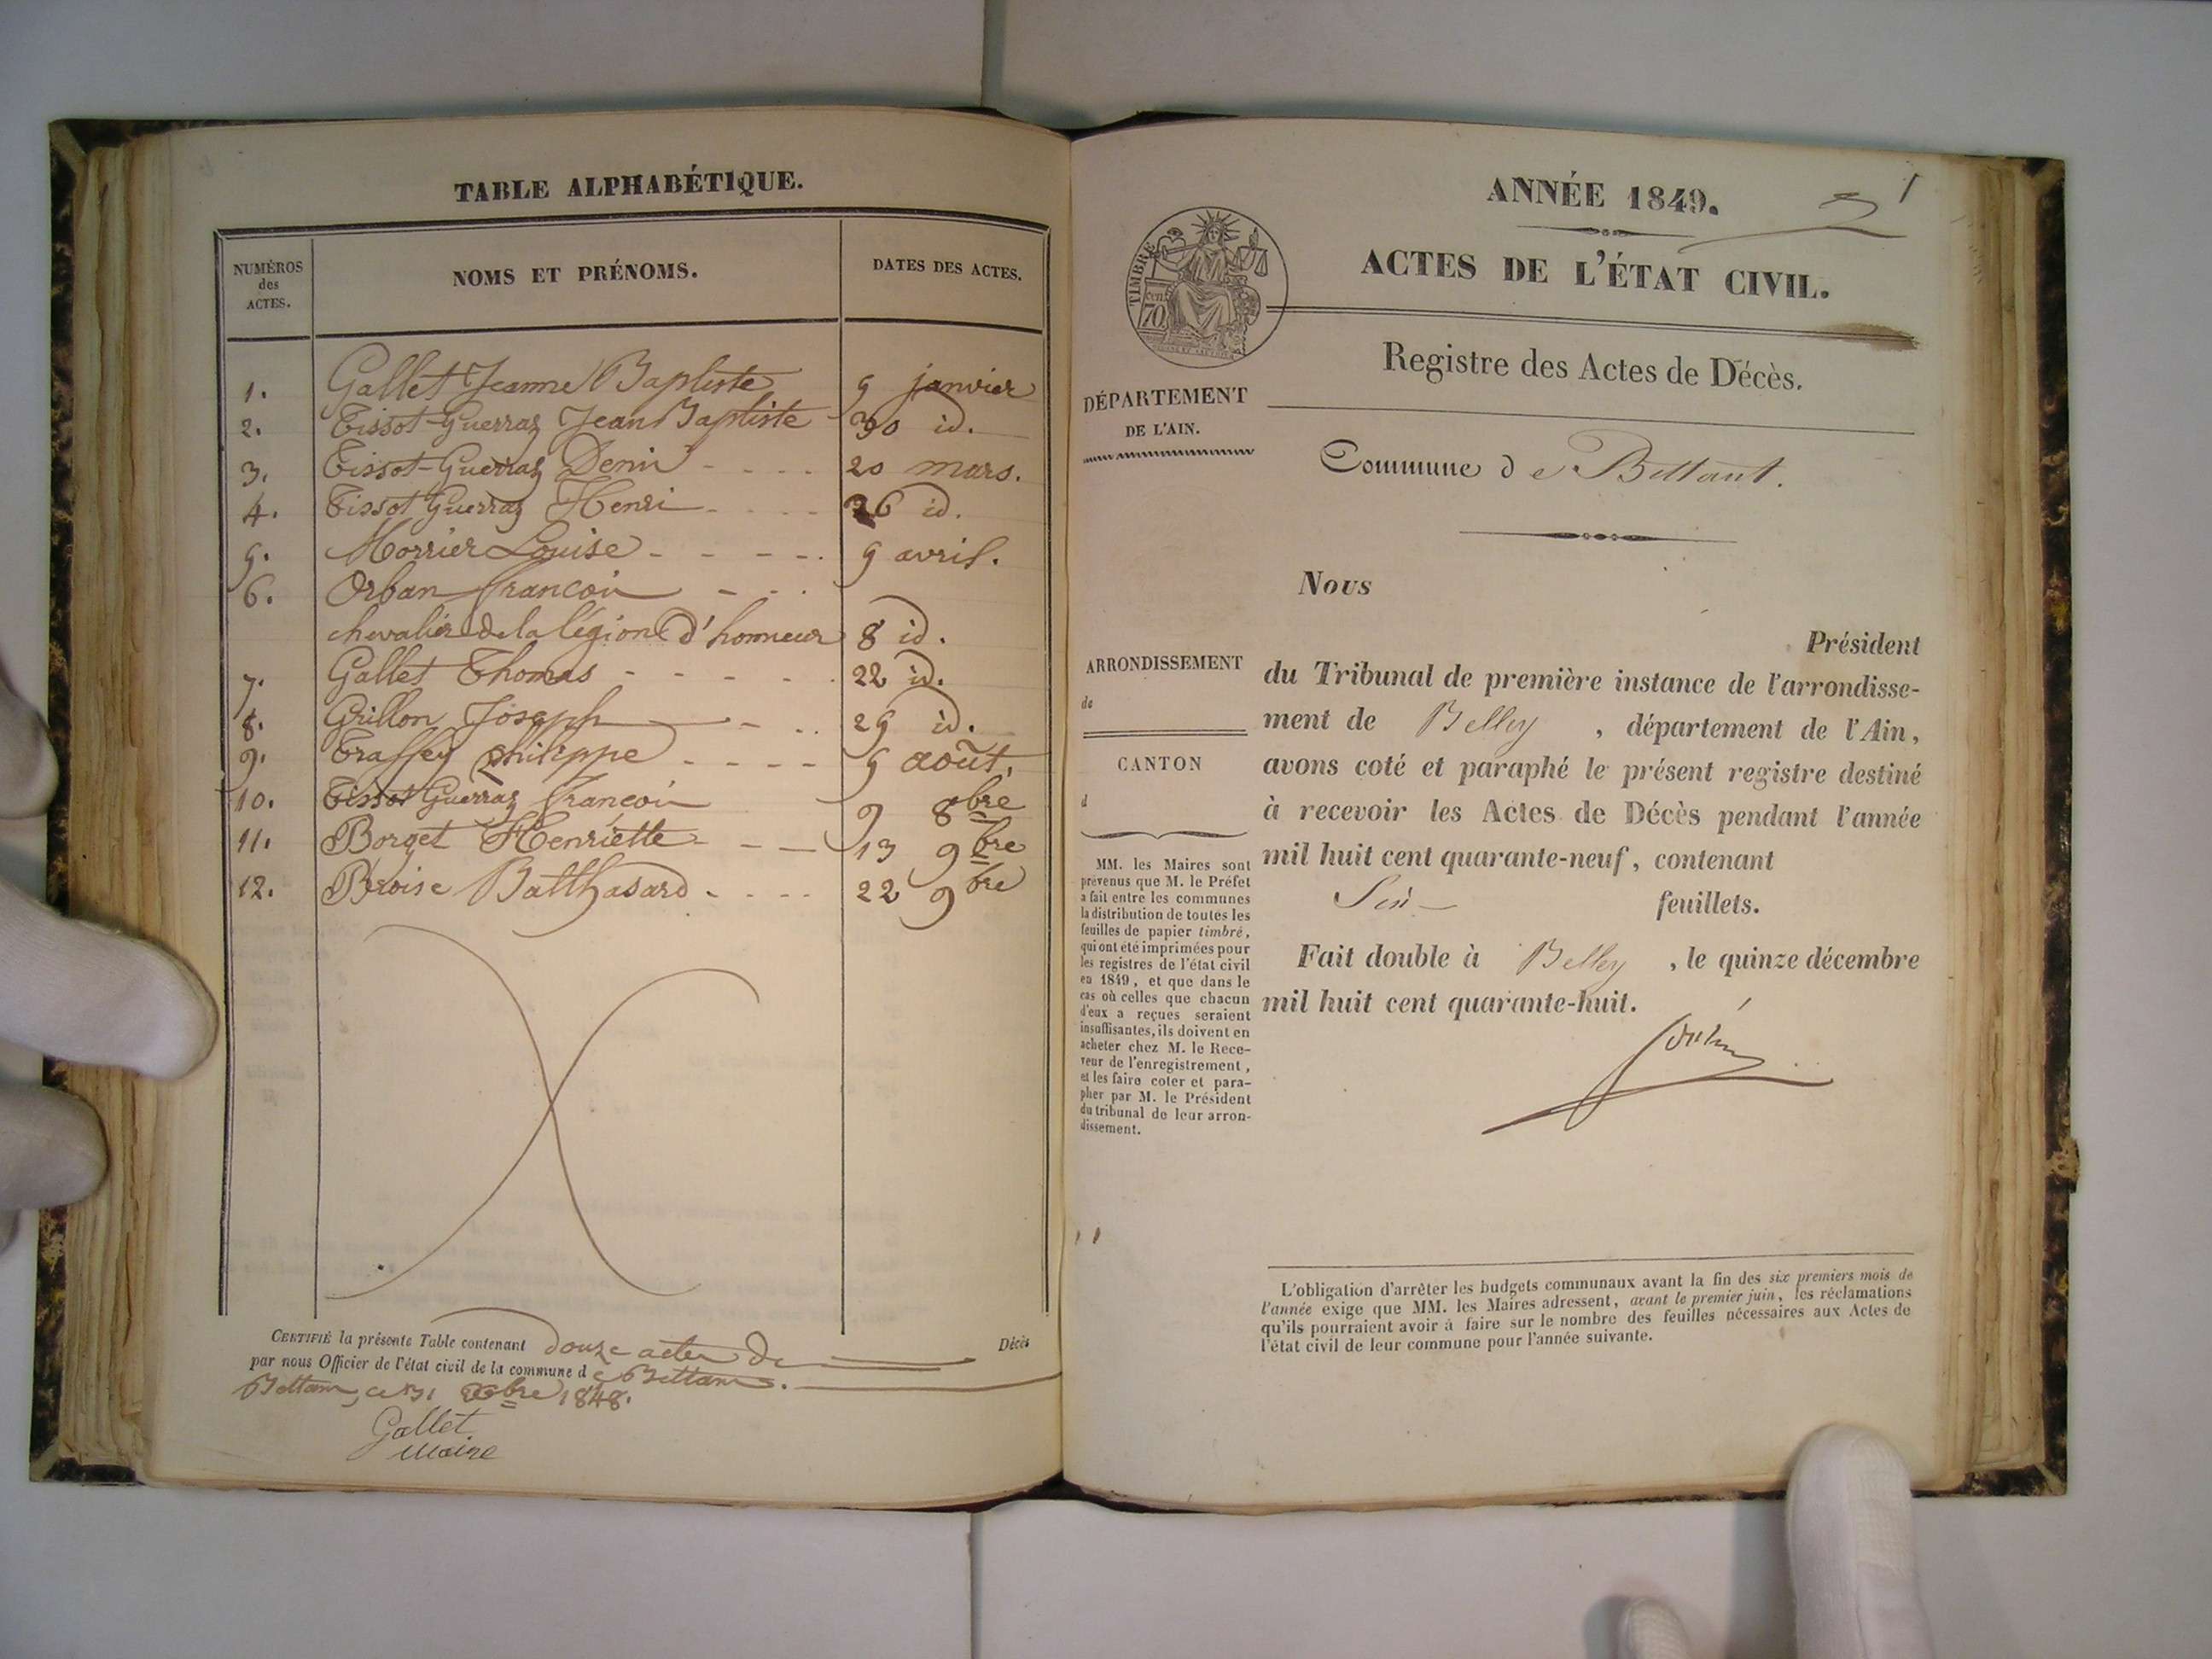 TABLE ALPHABÉTIQUE.
NUMÉROS des ACTES. NOMS ET PRÉNOMS. DATES DES ACTES.
1. Gallet Jeanne Baptiste 5 janvier
2. Tissot-Guerraz Jean Baptiste 30 id.
3. Tissot-Guerraz Denis 20 mars.
4. Tissot Guerraz Henri 26 id.
5. Morrier Louise 5 avril.
6. Orban françois
chevalier de la légion d'honneur 8 id.
7. Gallet Thomas 22 id.
8. Grillon Joseph 25 id.
9. Traffey philippe 5 août.
10. Tissot Guerraz françois 9 8bre
11. Borget Henriette 13 9bre
12. Béroise Balthasard 22 9bre
CERTIFIÉ la présente Table contenant douze actes de Décès
par nous Officier de l'état civil de la commune de Bettant.
Bettant, ce 31 Xbre 1848.
Gallet
maire
1
ANNÉE 1849.
ACTES DE L'ÉTAT CIVIL.
TIMBRE
70 cen.
Registre des Actes de Décès.
DÉPARTEMENT
DE L'AIN.
Commune de Bettant.
Nous
Président
ARRONDISSEMENT
de
CANTON
d
du Tribunal de première instance de l'arrondisse-
ment de Belley, département de l'Ain,
avons coté et paraphé le présent registre destiné
à recevoir les Actes de Décès pendant l'année
mil huit cent quarante-neuf, contenant
Six feuillets.
Fait double à Belley, le quinze décembre
mil huit cent quarante-huit.
MM. les Maires sont
prévenus que M. le Préfet
a fait entre les communes
la distribution de toutes les
feuilles de papier timbré,
qui ont été imprimées pour
les registres de l'état civil
en 1849, et que dans le
cas où celles que chacun
d'eux a reçues seraient
insuffisantes, ils doivent en
acheter chez M. le Rece-
veur de l'enregistrement,
et les faire coter et para-
pher par M. le Président
du tribunal de leur arron-
dissement.
L'obligation d'arrêter les budgets communaux avant la fin des six premiers mois de
l'année exige que MM. les Maires adressent, avant le premier juin, les réclamations
qu'ils pourraient avoir à faire sur le nombre des feuilles nécessaires aux Actes de
l'état civil de leur commune pour l'année suivante.